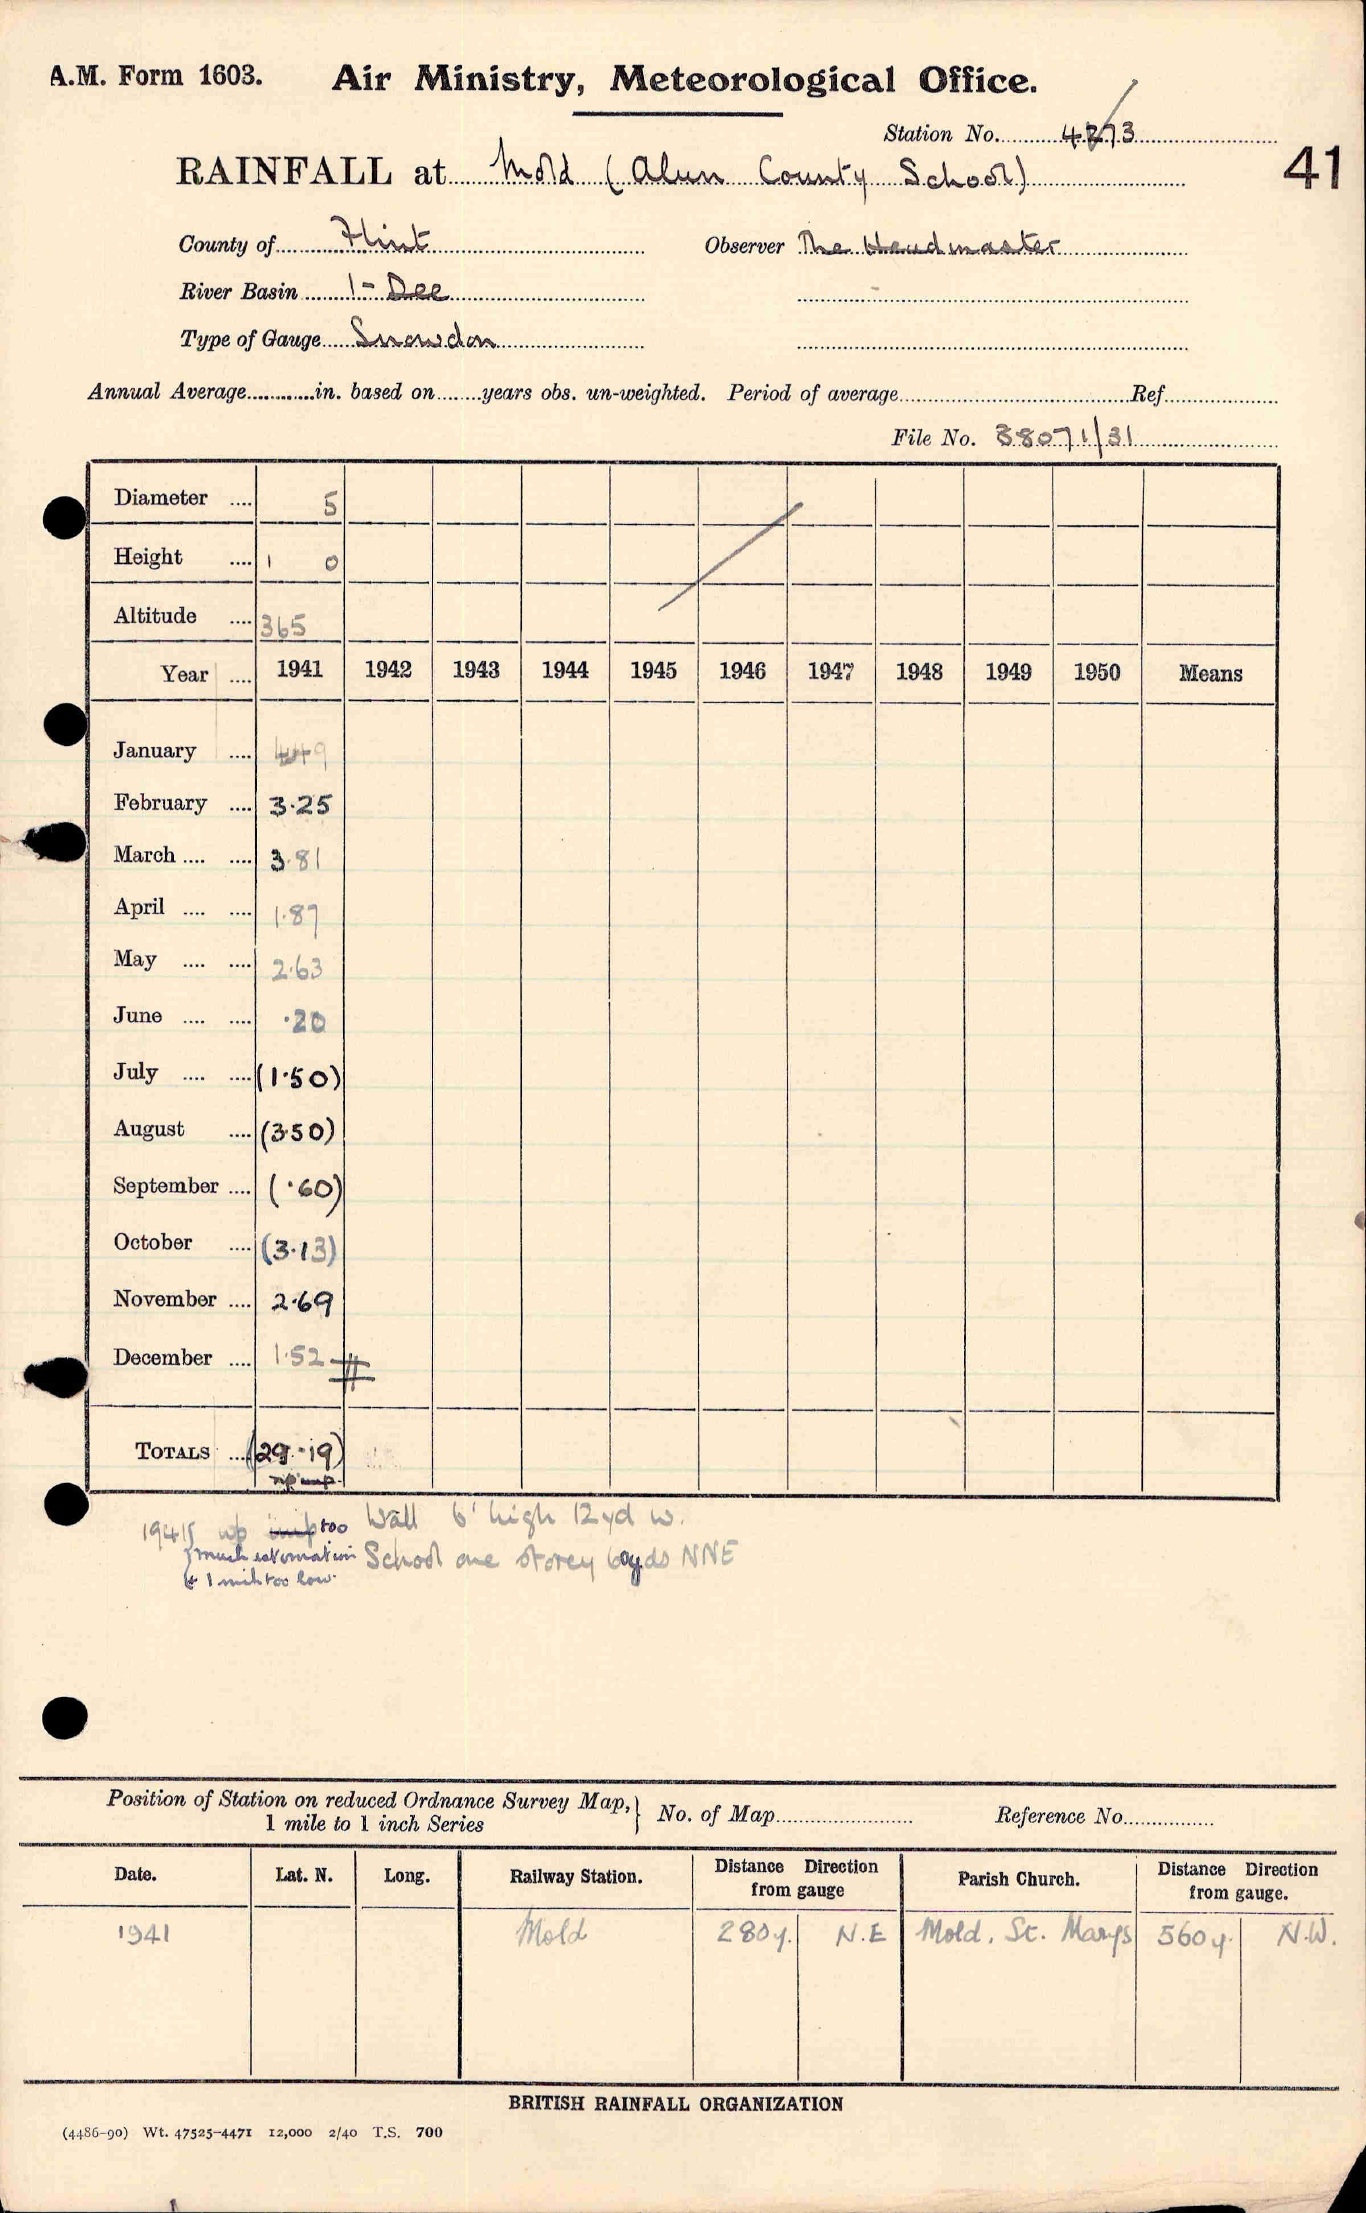 A.M. Form 1603. Air Ministry, Meteorological Office.
Station No. 4273
RAINFALL at Mold (Alun County School) 41
County of Flint Observer The Headmaster
River Basin 1- Dee
Type of Gauge Snowdon
Annual Average in. based on years obs. un-weighted. Period of average Ref.
File No. 38071/31
Diameter .... 5
Height .... 1 0
Altitude .... 365
Year .... 1941 1942 1943 1944 1945 1946 1947 1948 1949 1950 Means
January .... 4.49
February .... 3.25
March .... .... 3.81
April .... .... 1.87
May .... .... 2.63
June .... .... .20
July .... .... (1.50)
August .... (3.50)
September .... (.60)
October .... (3.13)
November .... 2.69
December .... 1.52 #
TOTALS ... (29.19)
1941 np too Wall 6' high 12yd W.
much estimation School one storey 60yds NNE
& 1 mth too low.
Position of Station on reduced Ordnance Survey Map, } No. of Map Reference No.
1 mile to 1 inch Series
Date. Lat. N. Long. Railway Station. Distance Direction from gauge Parish Church. Distance Direction from gauge.
1941 Mold 280y. N.E Mold, St. Marys 560y. N.W.
BRITISH RAINFALL ORGANIZATION
(4486-90) Wt. 47525-4471 12,000 2/40 T.S. 700